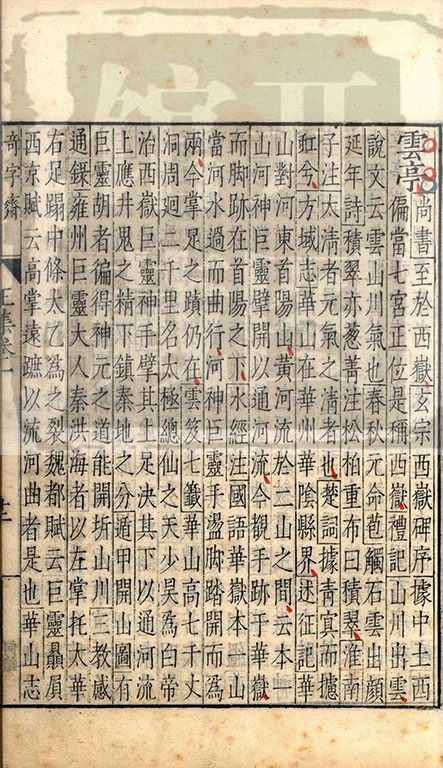 雲亭
尚書至於西嶽玄宗西嶽碑序據中土西
偏當七宮正位是稱西嶽禮記山川出雲
說文云雲山川氣也春秋元命苞觸石雲出顏
延年詩積翠亦葱菁注松柏重布曰積翠淮南
子注太清者元氣之清者也楚詞據青冥而攄
虹兮方域志華山在華州華陰縣界述征記華
山對河東首陽山黃河流於二山之間云本一
山河神巨靈擘開以通河流今觀手跡于華嶽
而脚跡在首陽之下水經注國語華嶽本一山
當河水過而曲行河神巨靈手盪脚踏開而為
兩今掌足之蹟仍在雲笈七籤華山高七千丈
洞周迴二千里名太極總仙之天少昊為白帝
治西嶽巨靈神手擘其上足決其下以通河流
上應井鬼之精下鎮秦地之分遁甲開山圖有
巨靈胡者徧得神元之道能開坼山川三教感
通錄雍州巨靈大人秦洪海者以左掌托太華
右足蹋中條太乙為之裂魏都賦云巨靈贔屓
西京賦云高掌遠蹠以流河曲者是也華山志
奇字齋
王集卷一